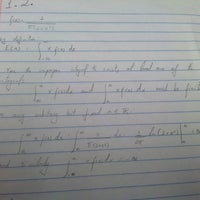 1.2.
f(x) = 1 / π(1+x²)
by definition
E(x) = ∫_{-∞}^{∞} x f(x) dx
For the improper integral to exists at least one of the
integrals
∫_{-∞}^{a} x f(x) dx and ∫_{a}^{∞} x f(x) dx must be finite
any arbitrary but fixed a ∈ ℝ.
∫ x f(x) dx = ∫ x / π(1+x²) dx = 1/2π ln(1+x²) | = ∞
∫ x f(x) dx = -∞